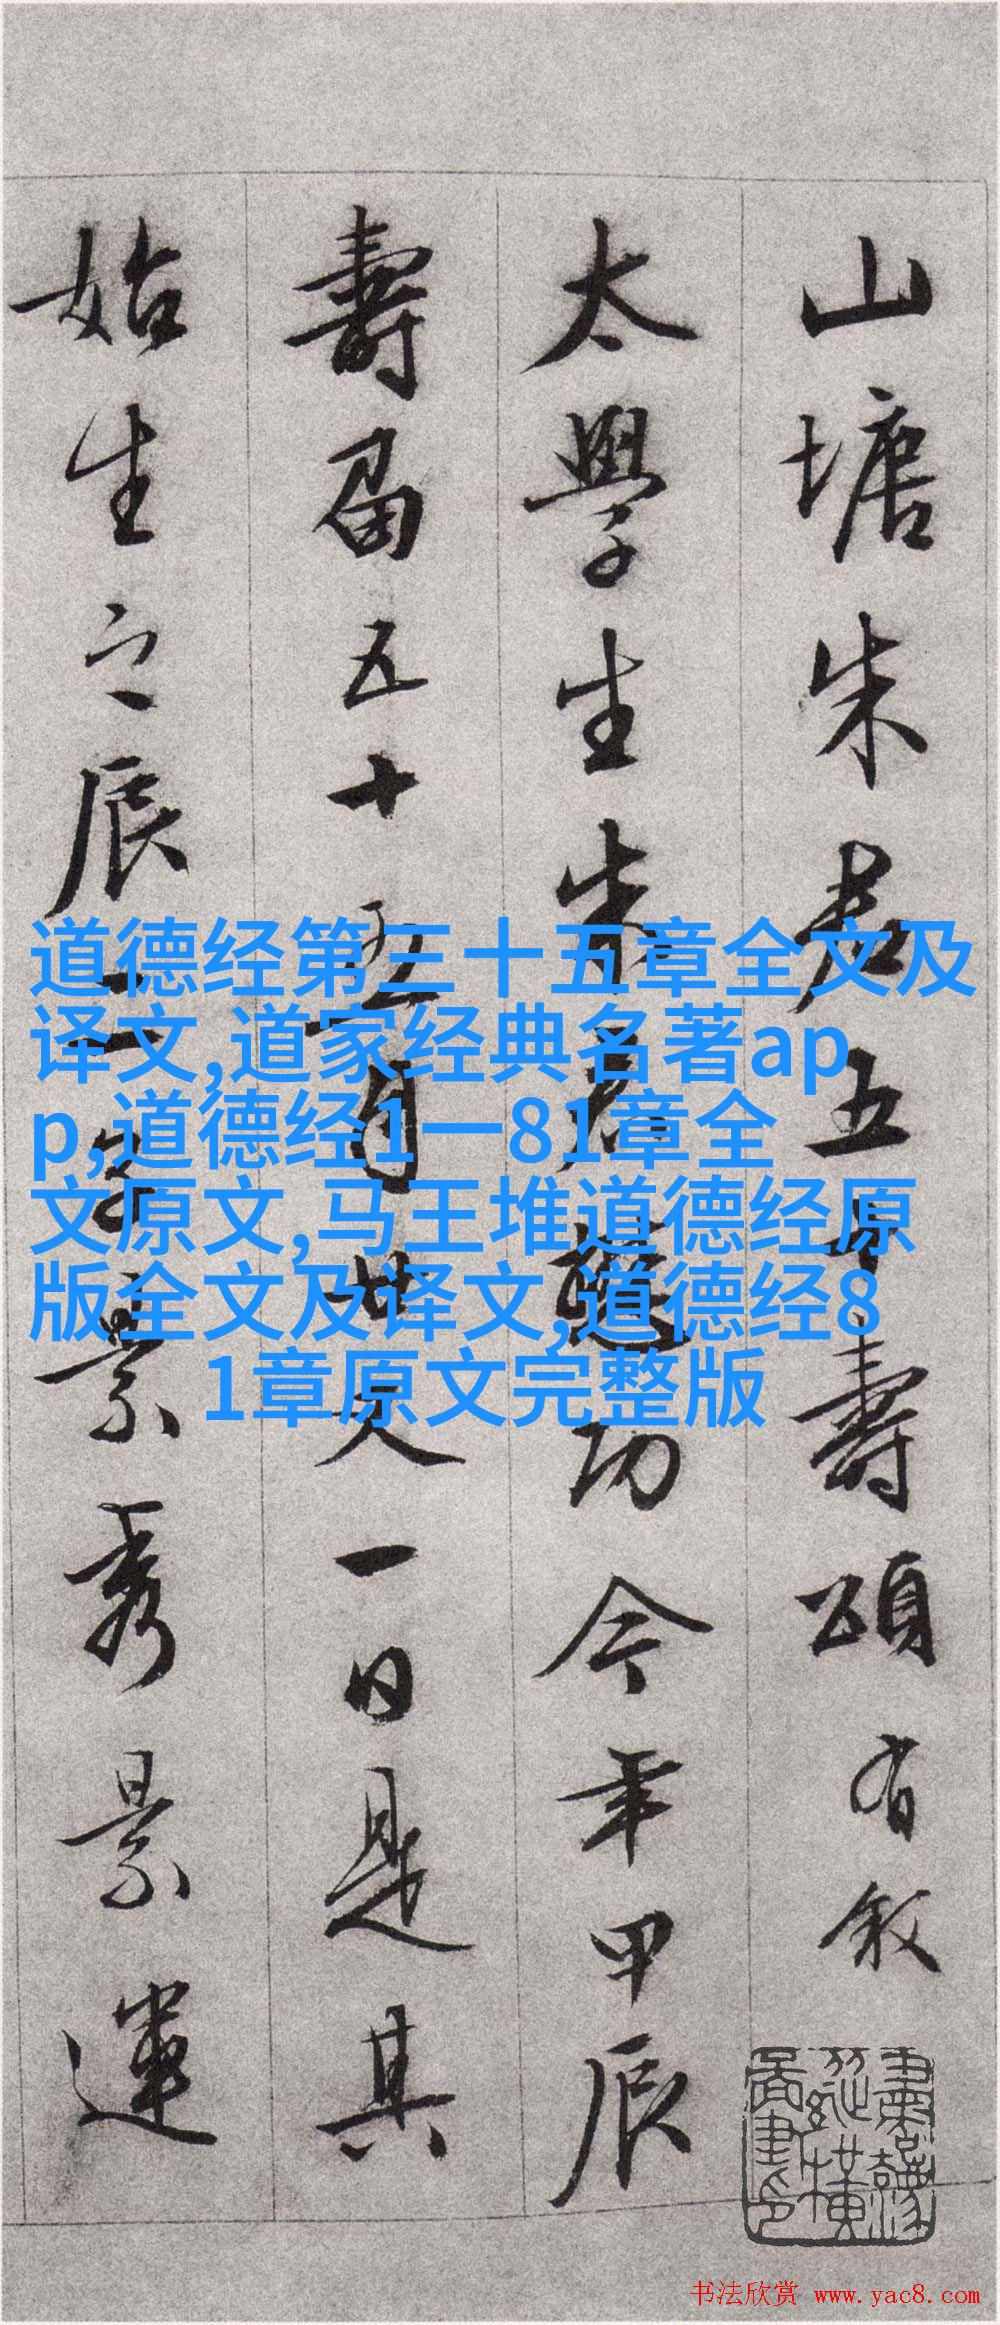 山塘朱君五十壽頌有敘
太學生朱君功今年甲辰
壽五十五月廿又一日是其
始生之辰景秀景運
道德经第三十五章全文及
译文,道家经典名著ap
p,道德经1一81章全
文原文,马王堆道德经原
版全文及译文,道德经8
1章原文完整版
书法欣赏 www.yac8.com